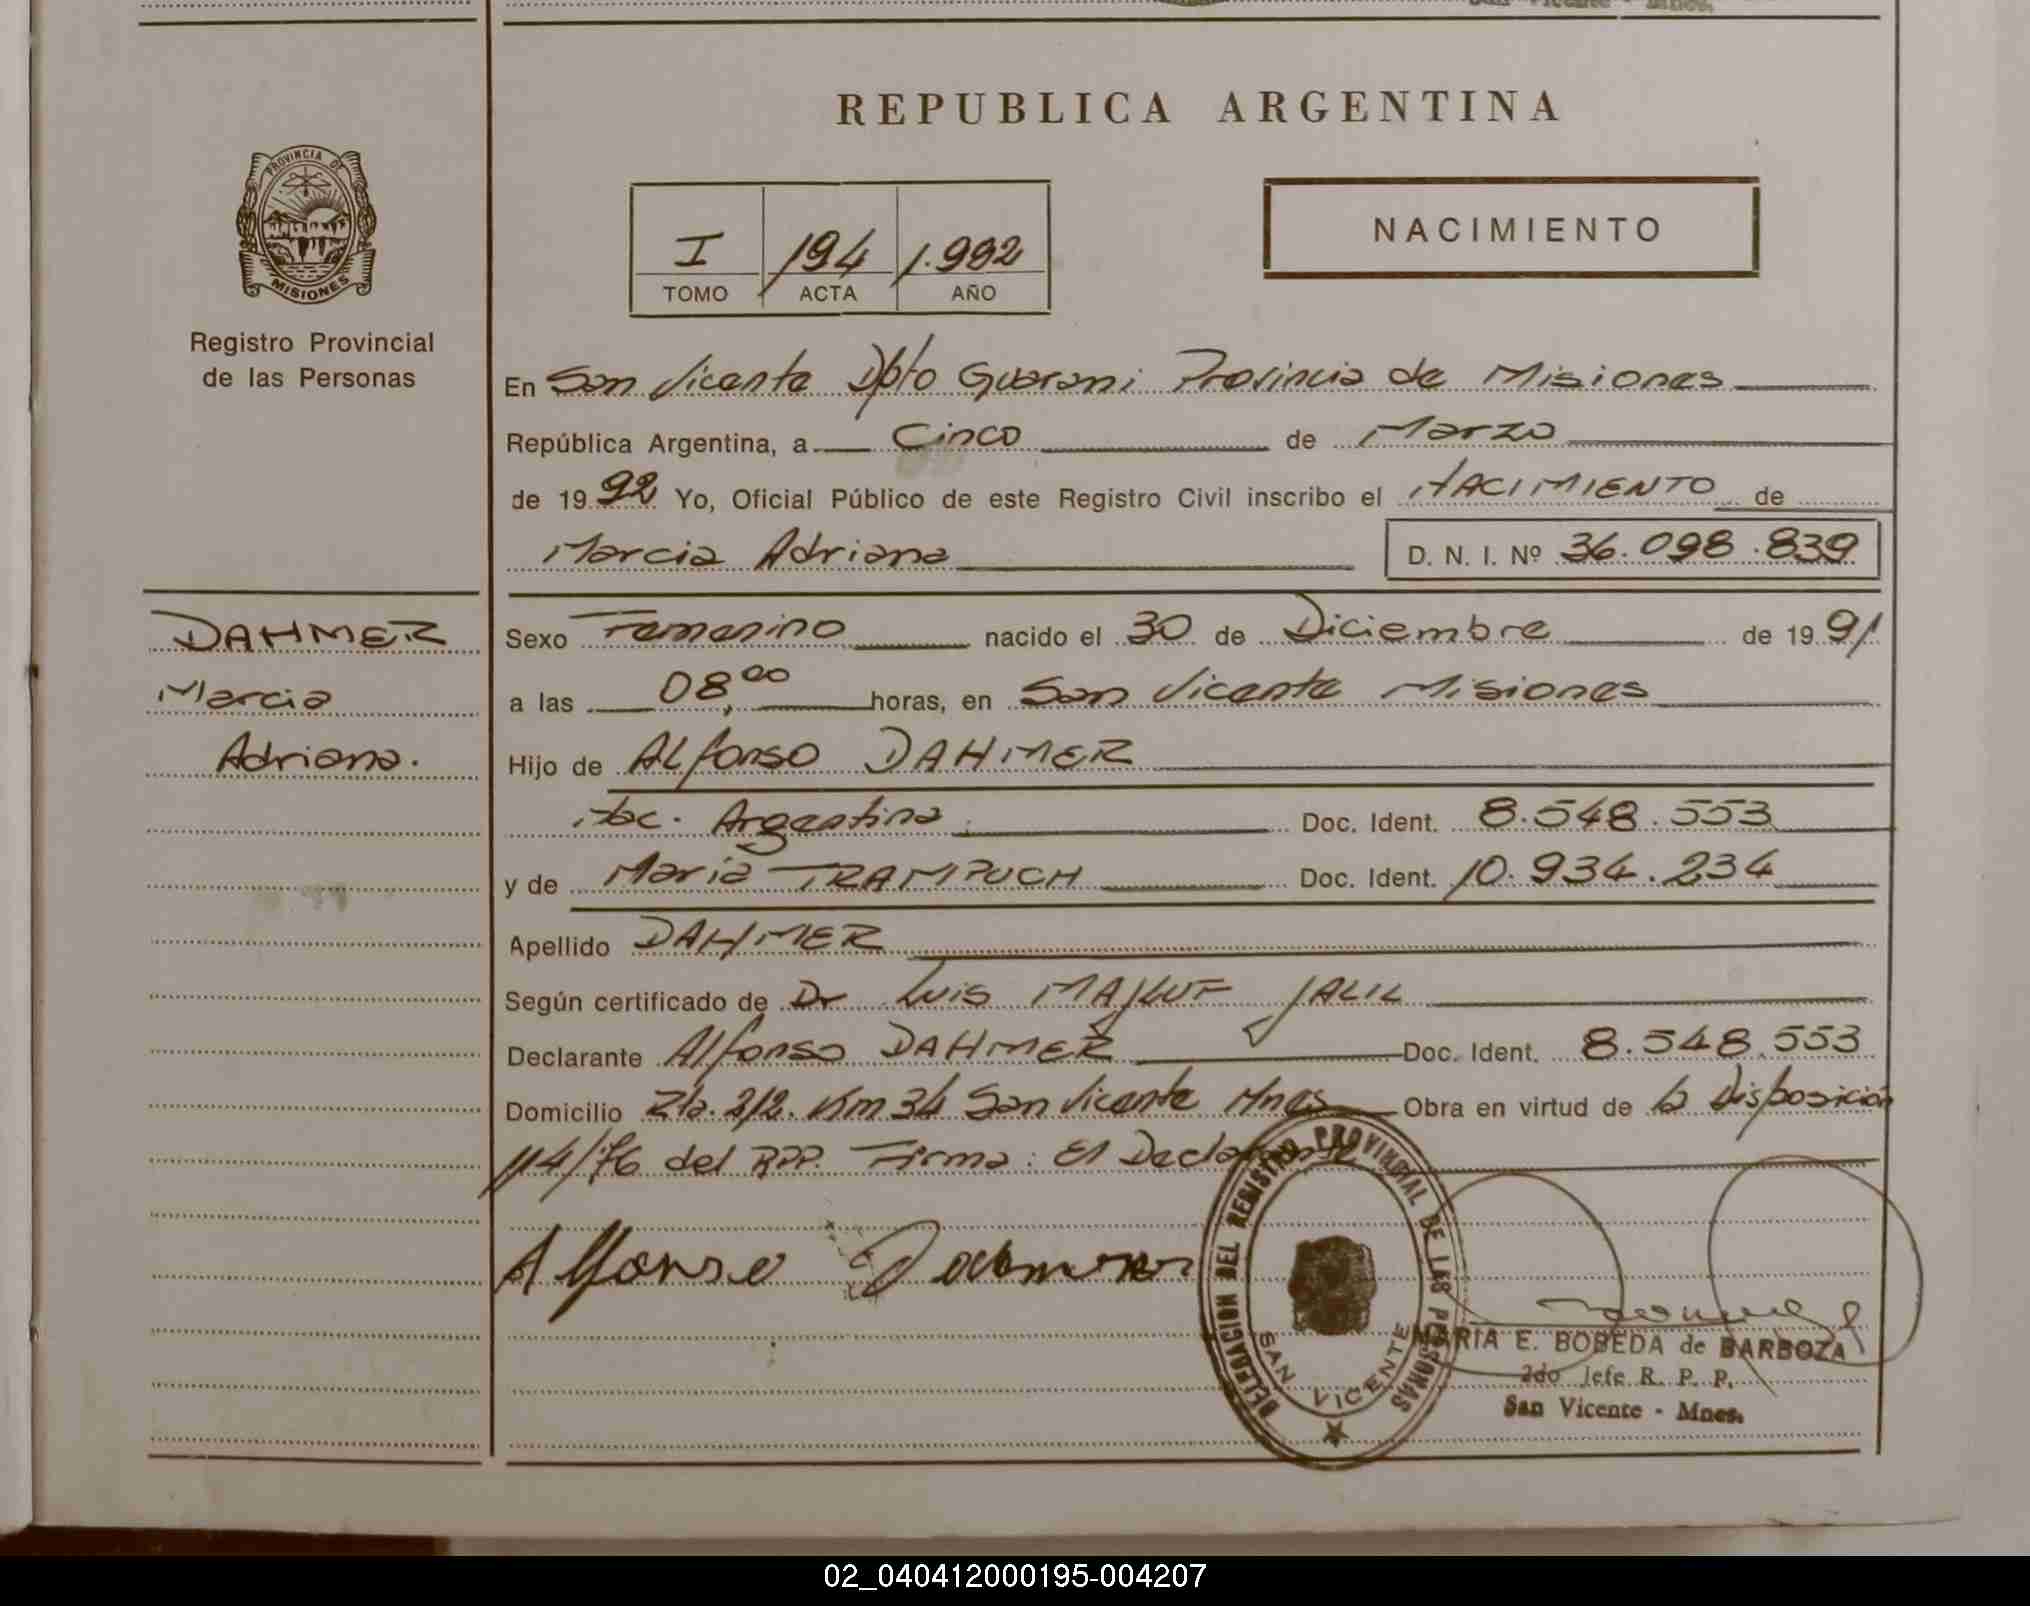 REPUBLICA ARGENTINA
PROVINCIA DE
MISIONES
Registro Provincial
de las Personas
NACIMIENTO
I 194 1.992
TOMO ACTA AÑO
En San Vicente Dpto Guarani Provincia de Misiones
República Argentina, a Cinco de Marzo
de 19 92 Yo, Oficial Público de este Registro Civil inscribo el NACIMIENTO de
Marcia Adriana D. N. I. Nº 36.098.839
DAHMER
Marcia
Adriana.
Sexo Femenino nacido el 30 de Diciembre de 19 91
a las 08,00 horas, en San Vicente Misiones
Hijo de Alfonso DAHMER
Nac. Argentina Doc. Ident. 8.548.553
y de Maria TRAMPUCH Doc. Ident. 10.934.234
Apellido DAHMER
Según certificado de Dr Luis MAJLUF JALIL
Declarante Alfonso DAHMER Doc. Ident. 8.548.553
Domicilio Km 34 San Vicente Mnes Obra en virtud de la Disposición
114/76 del RPP. Firma: El Declarante
Alfonso Dahmer
DELEGACION DEL REGISTRO PROVINCIAL DE LAS PERSONAS
SAN VICENTE
MARIA E. BOBEDA de BARBOZA
2do Jefe R. P. P.
San Vicente - Mnes.
02_040412000195-004207